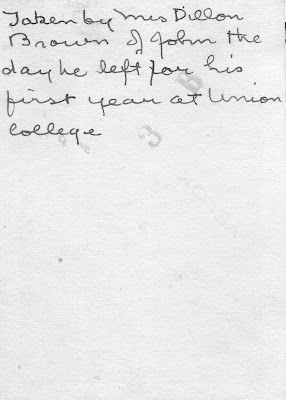 Taken by Mrs Dillon
Brown of John the
day he left for his
first year at Union
College